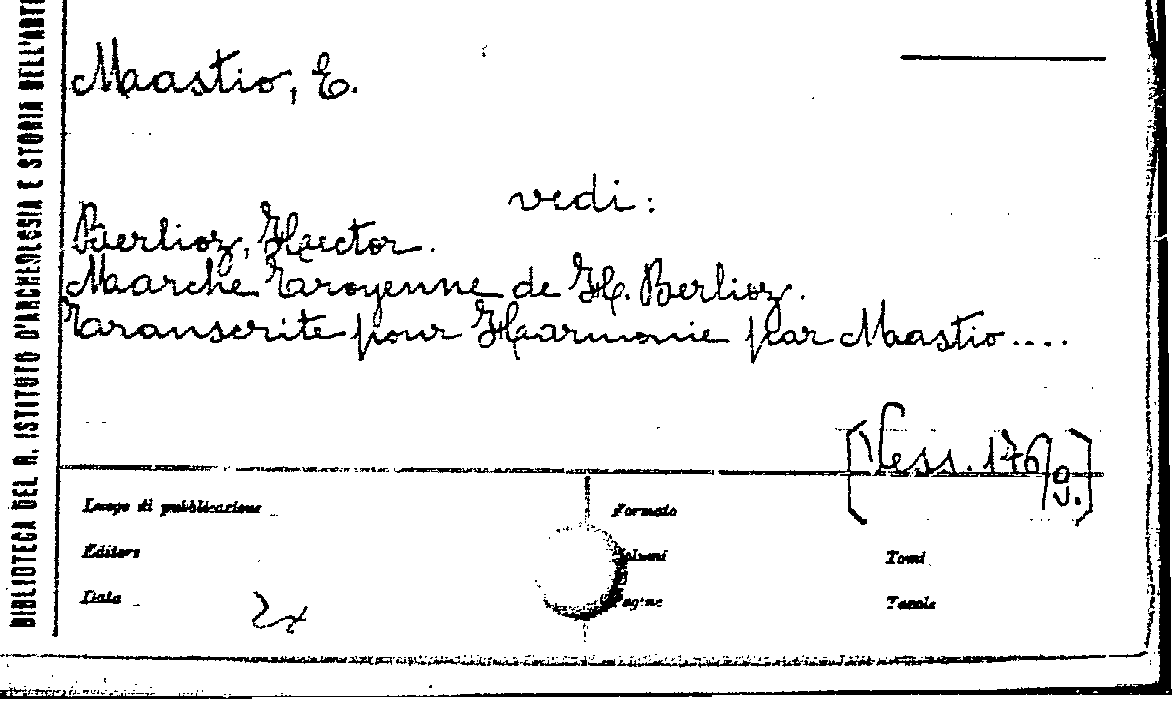 BIBLIOTECA DEL R. ISTITUTO D'ARCHEOLOGIA E STORIA DELL'ARTE
Mastio, E.
vedi:
Berlioz, Hector.
Marche Troyenne de H. Berlioz.
Transcrite pour Harmonie par Mastio....
[Vess. 176/9.]
Luogo di pubblicazione
Formato
Editore
Volumi
Tomi
Data
Pagine
Tavole